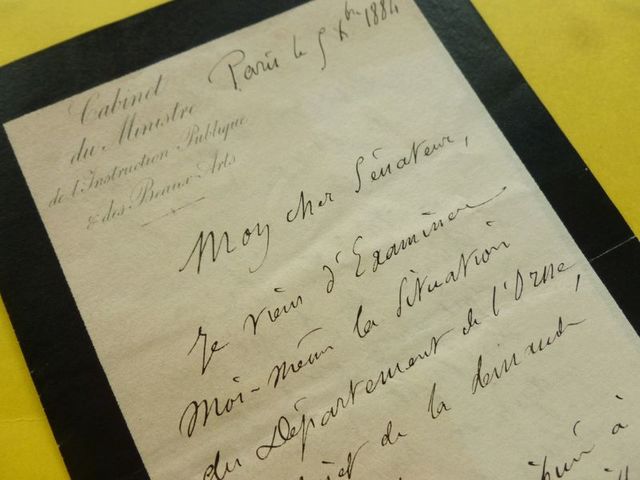 Cabinet
du Ministre
de l'Instruction Publique
& des Beaux-Arts
Paris le 5 Xbre 1884
Moy cher Sénateur,
Je viens d'Examiner
Moi-même la Situation
du Département de l'Orne,
de la demande
à